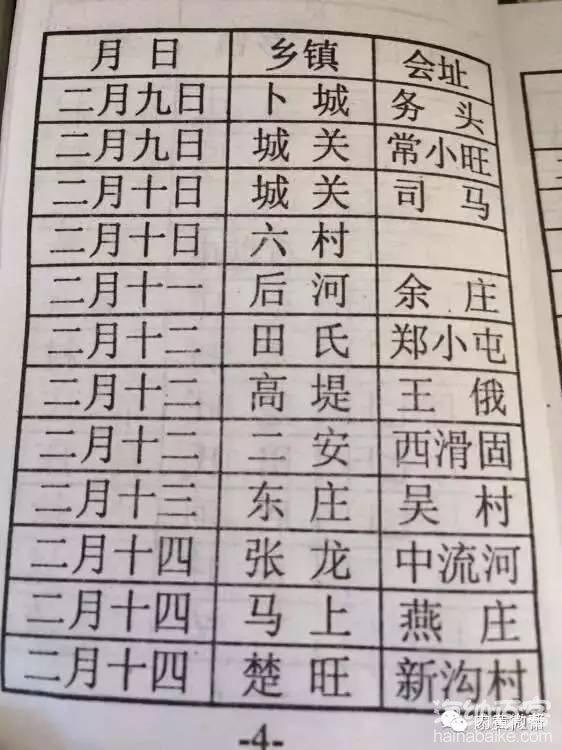 月 日 乡镇 会址
二月九日 卜城 务头
二月九日 城关 常小旺
二月十日 城关 司马
二月十日 六村
二月十一 后河 余庄
二月十二 田氏 郑小屯
二月十二 高堤 王俄
二月十二 二安 西滑固
二月十三 东庄 吴村
二月十四 张龙 中流河
二月十四 马上 燕庄
二月十四 楚旺 新沟村
-4-
hainabaike.com